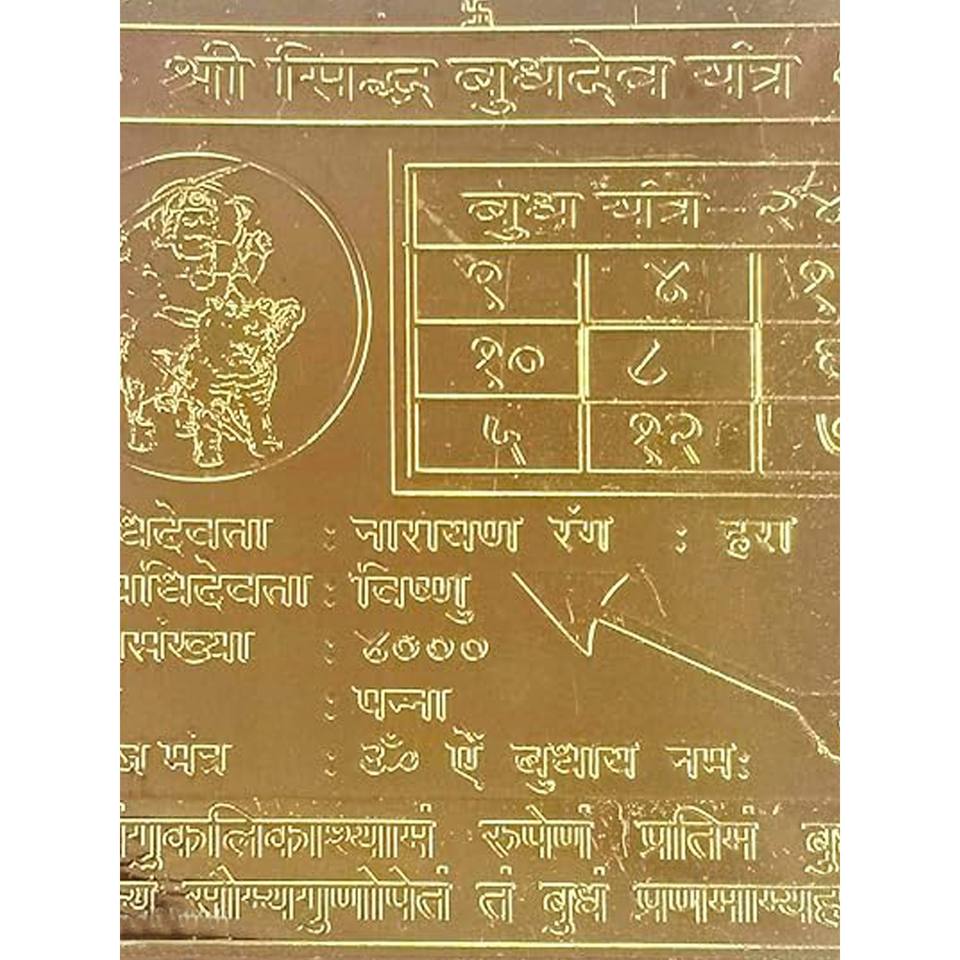 श्री सिद्ध बुधदेव यंत्र
बुध यंत्र २४
९ ४
१० ८ ६
५ १२ ७
धिदेवता : नारायण रंग : हरा
यधिदेवता : विष्णु
संख्या : ४०००
: पन्ना
ज मंत्र : ॐ ऐं बुधाय नमः
ंगुकलिकाश्यामं रुपेणं प्रातिमं बु
म्यं सौम्यगुणोपेतं तं बुधं प्रणमाम्यह